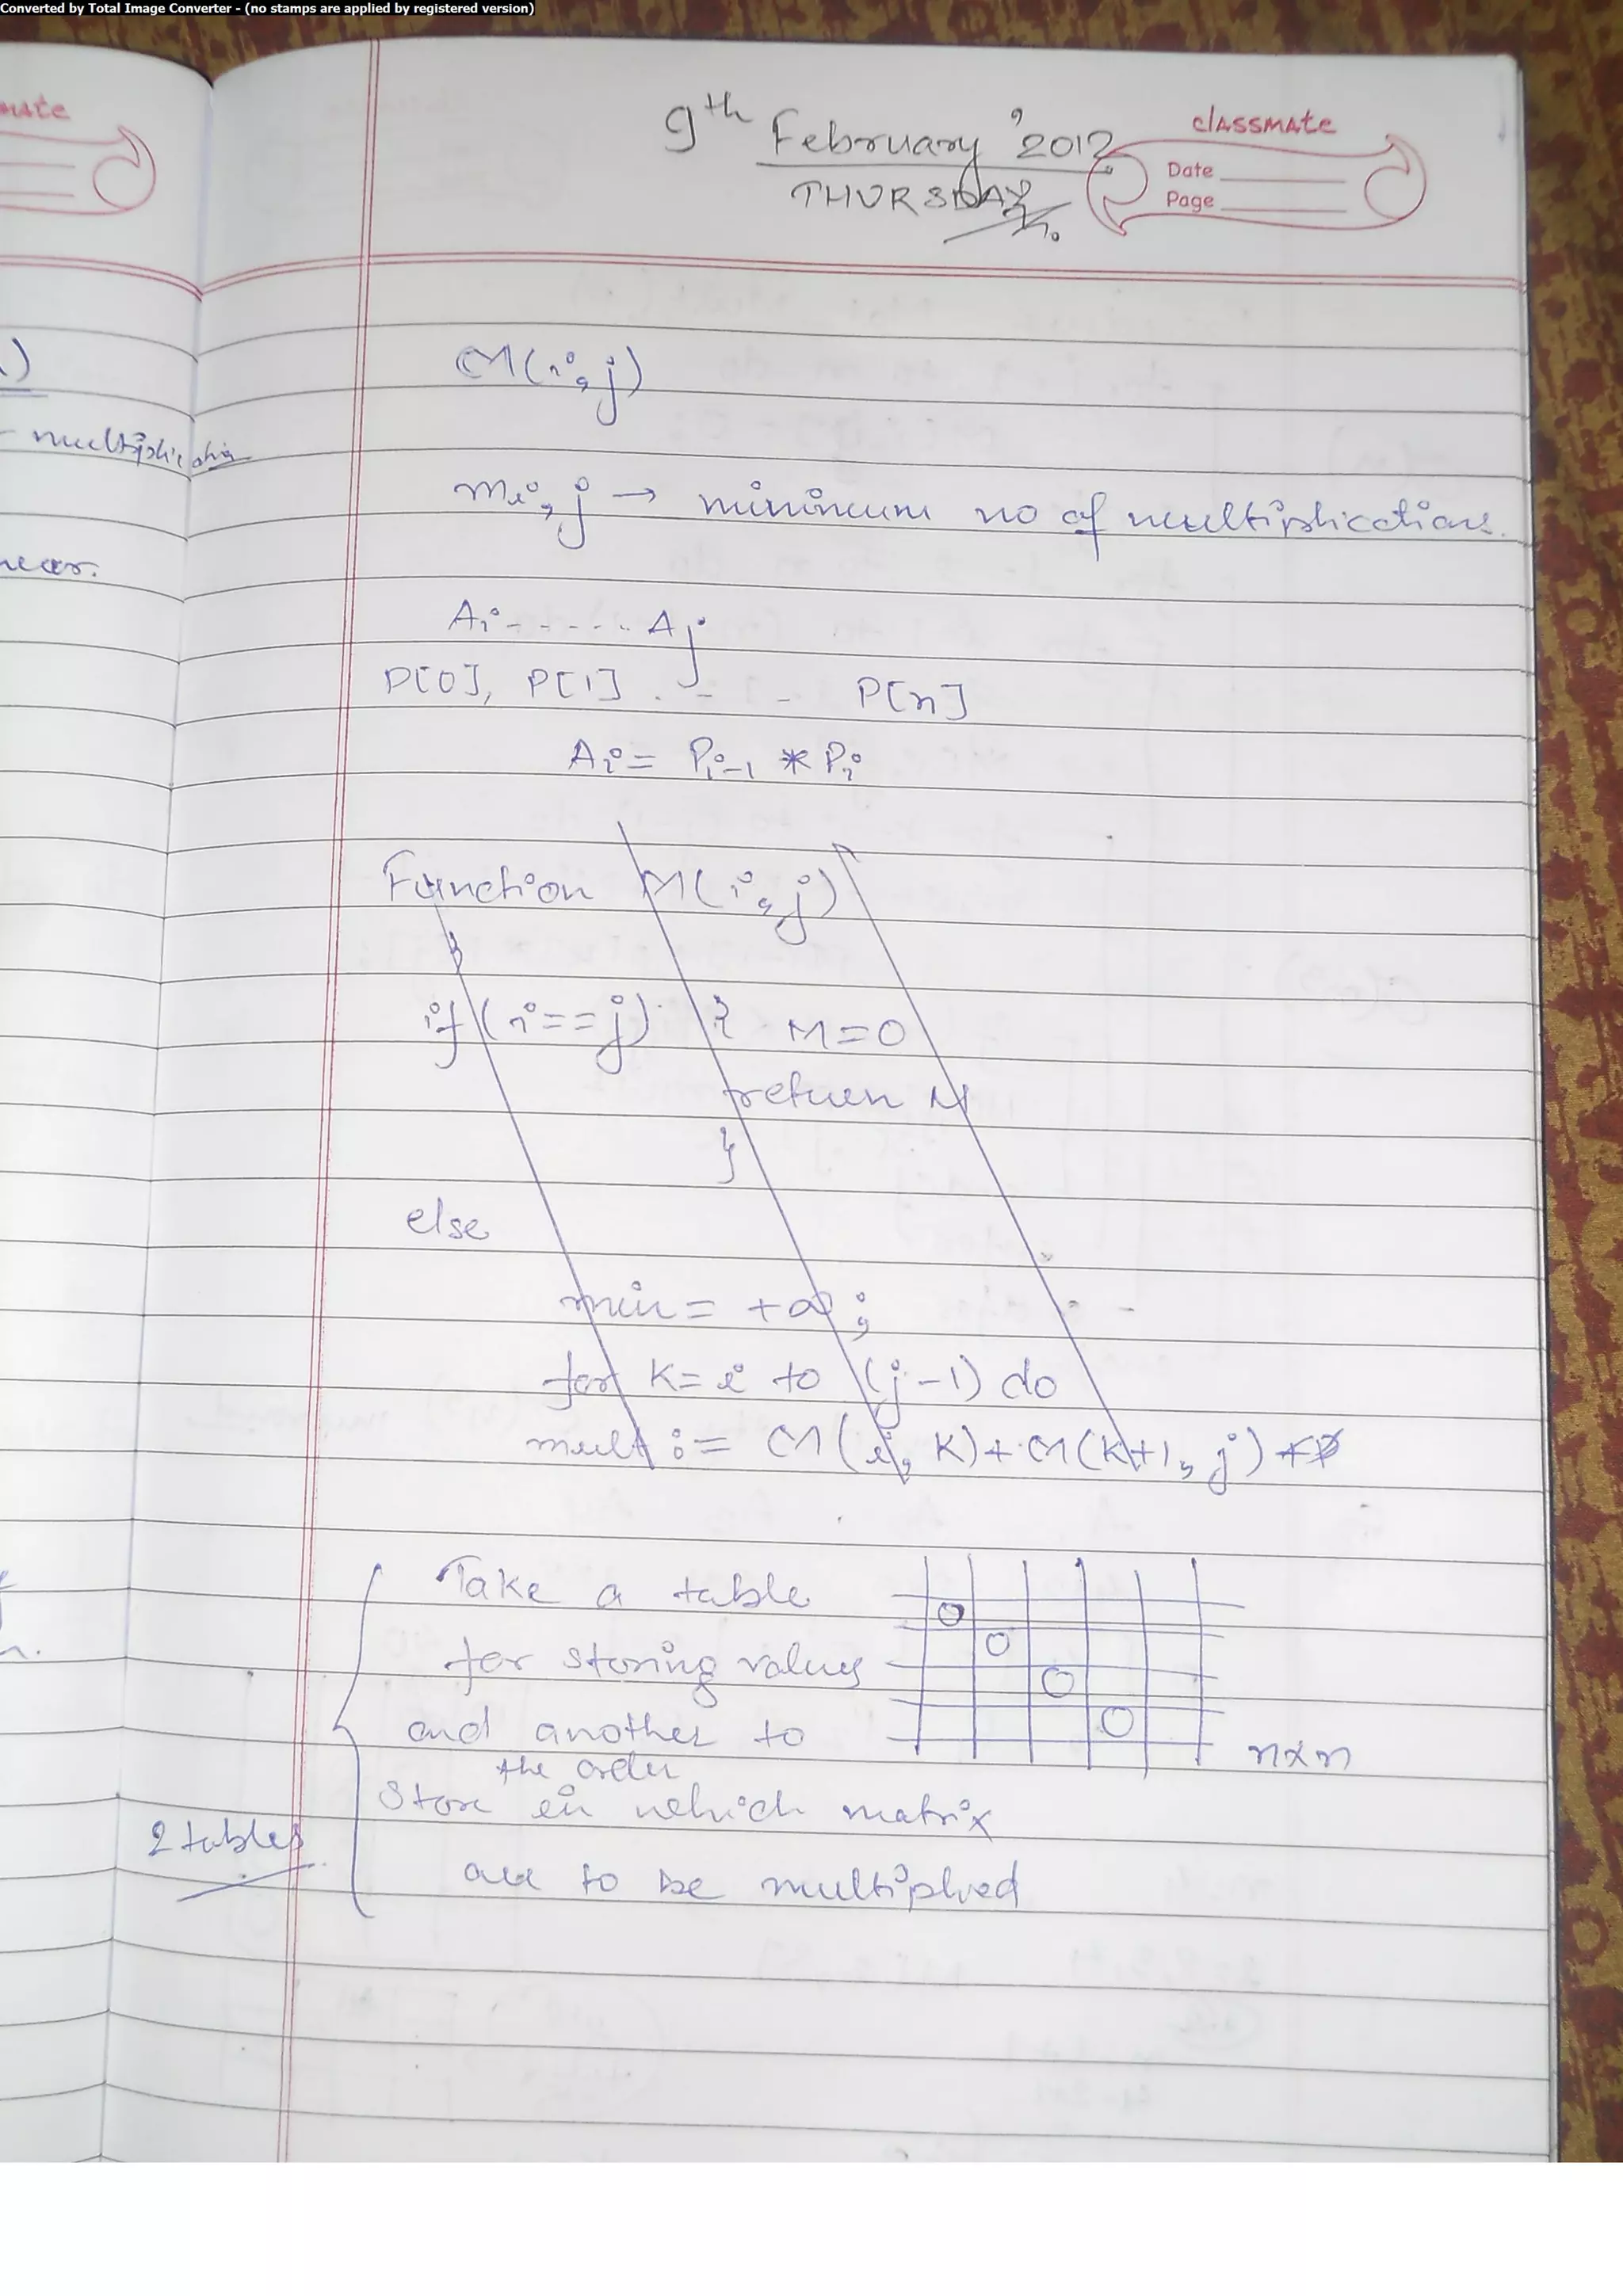 Converted by Total Image Converter - (no stamps are applied by registered version)
9th February '2012
THURSDAY
classmate
Date
Page
M(i,j)
multiplication
mi,j → minimum no of multiplications.
Ai ----- Aj
P[0], P[1] . - - P[n]
Ai = Pi-1 * Pi
Function M(i,j)
{
if (i==j) { M=0
return M
}
else
min = +∞;
for K=i to (j-1) do
mult := M(i, K)+M(K+1, j) +P
Take a table
0
for storing values
0
0
and another to
0
n×n
the order
store in which matrix
2 tables
are to be multiplied